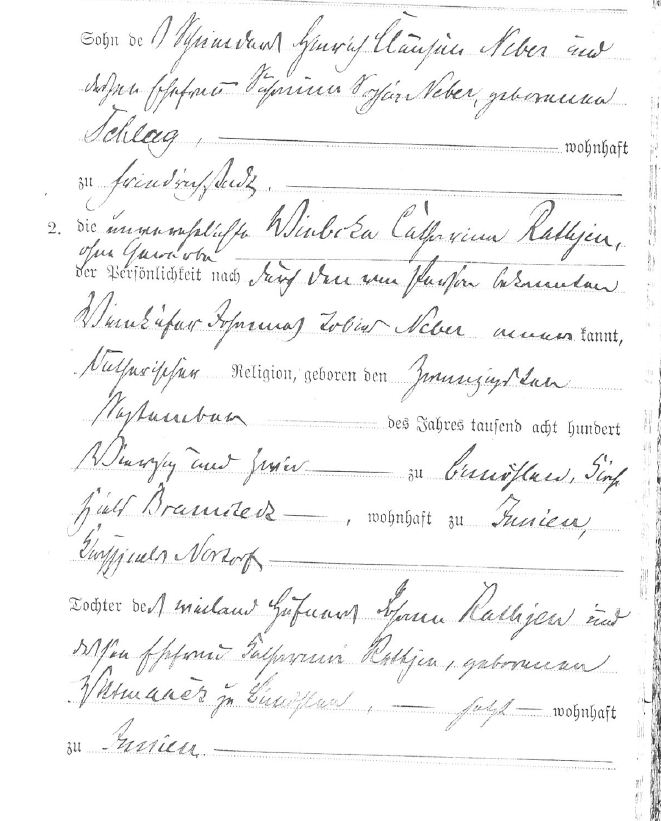 Sohn des Hinrich Claußen Neber und
dessen Ehefrau Neber, geborenen
Schlag, wohnhaft
zu Friedrichstadt.
2. die unverehelichte Wiebcke Catharina Rathjen,
ohne Gewerbe
der Persönlichkeit nach durch den von Person bekannten
Johannes Tobias Neber anerkannt,
lutherischer Religion, geboren den zwanzigsten
September des Jahres tausend acht hundert
vierzig und zwei zu Bimöhlen, Kirch
spiels Bramstedt, wohnhaft zu Innien,
Kirchspiels Nortorf
Tochter des weiland Hufners Johann Rathjen und
dessen Ehefrau Catharina Rathjen, geborenen
Wittmaack zu Bimöhlen, jetzt wohnhaft
zu Innien.